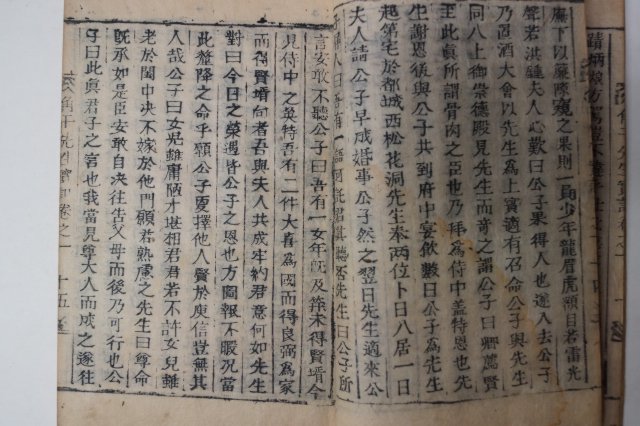 廡下以簾隙窺之果則一員少年龍眉虎額目若雷光
聲若洪鍾夫人心歎曰公子果得人也遂入去公子
乃置酒大會以先生為上賓適有召命公子與先生
同八上御崇德殿見先生而奇之謂公子曰卿薦賢
王此眞所謂骨肉之臣也乃拜為侍中盖特恩也先
生謝恩後與公子共到府中宴飮數日公子為先生
起第宅於都城西松花洞先生奉兩位卜日八居一日
夫人請公子早成婚事公子然之翌日先生適來公
子
言安敢不聽公子曰吾有一女年旣及筓未得賢壻今
見侍中之英特吾有二件大喜為國而得良弼為家
而得賢壻向者吾與夫人共成牢約君意何如先生
對曰今日之榮遇皆公子之恩也方圖報不暇况當
此釐降之命乎願公子更擇他人賢於庾信豈無其
人哉公子曰女児雖庸陋才堪相君君若不許女兒雖
老於閨中決不嫁於他門願君熟慮之先生曰尊命
旣承如是臣安敢自決往告父母而後乃可行也公
子曰此眞君子之言也我當見尊大人而成之遂往
角干先生實記卷之一 十五